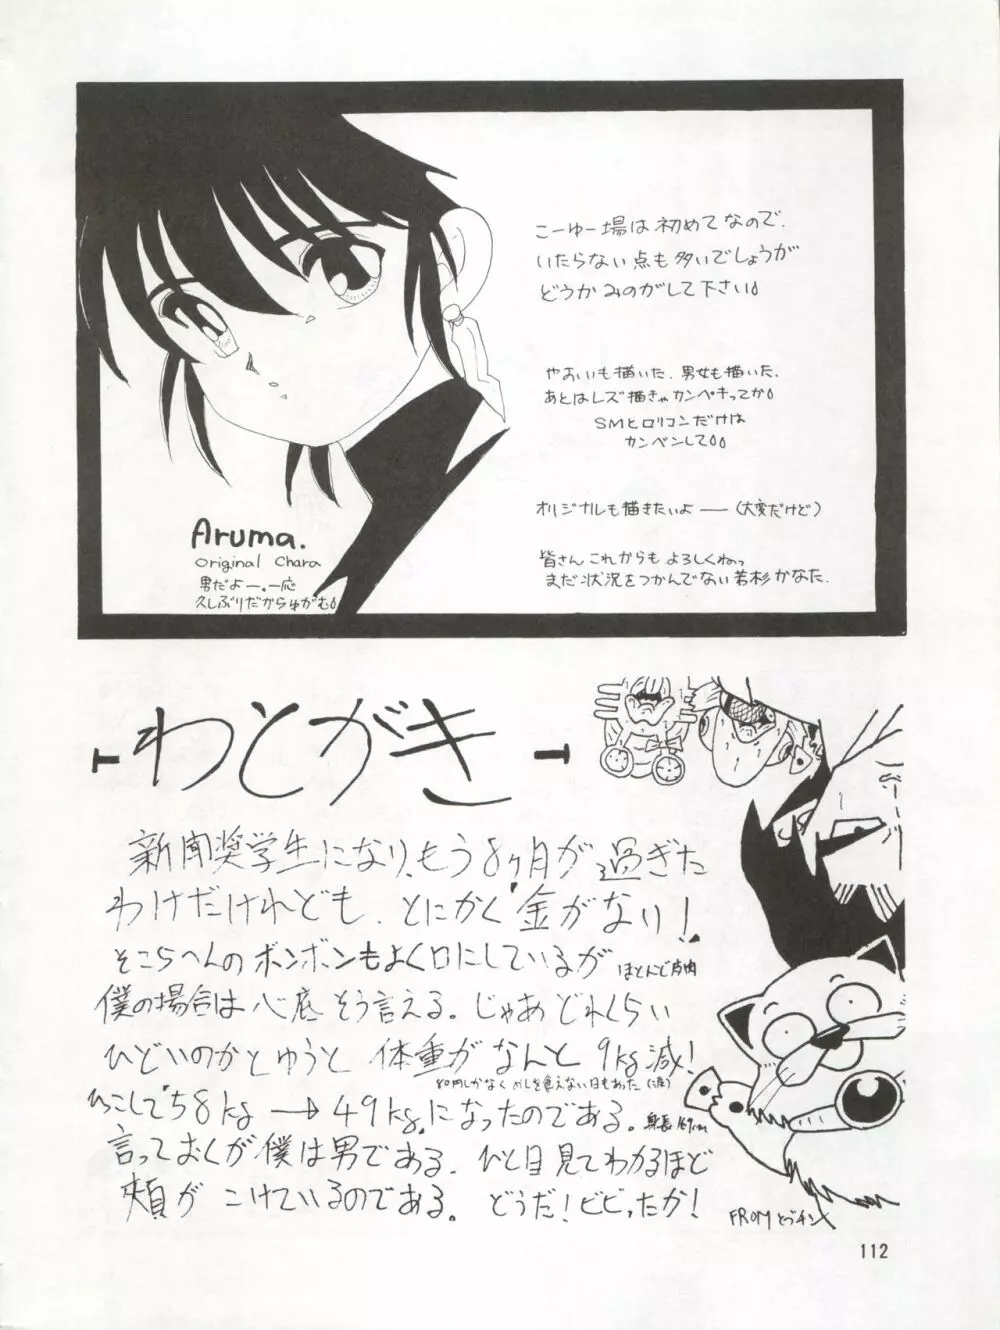 こーゆー場は初めてなので、
いたらない点も多いでしょうが
どうかみのがして下さい
やおいも描いた、男女も描いた、
あとはレズ描きゃカンペキってか
SMとロリコンだけは
カンベンして
オリジナルも描きたいよ ―― (大変だけど)
皆さん これからも よろしくねっ
まだ状況をつかんでない若杉かなた.
Aruma.
Original Chara
男だよー。一応
久しぶりだからゆがむ
わとがき
新聞奨学生になり、もう8ヶ月が過ぎた
わけだけれども、とにかく金がない!
そこらへんのボンボンもよく口にしているが
僕の場合は心底そう言える。じゃあどれくらい
ひどいのかとゆうと 体重がなんと 9kg減!
80円しかなくメシを食えない日もあった(涙)
ひっこしして58kg → 49kg.になったのである。身長167cm
言っておくが僕は男である。ひと目見てわかるほど
頬が こけているのである。 どうだ!ビビったか!
FROM とづチン
112